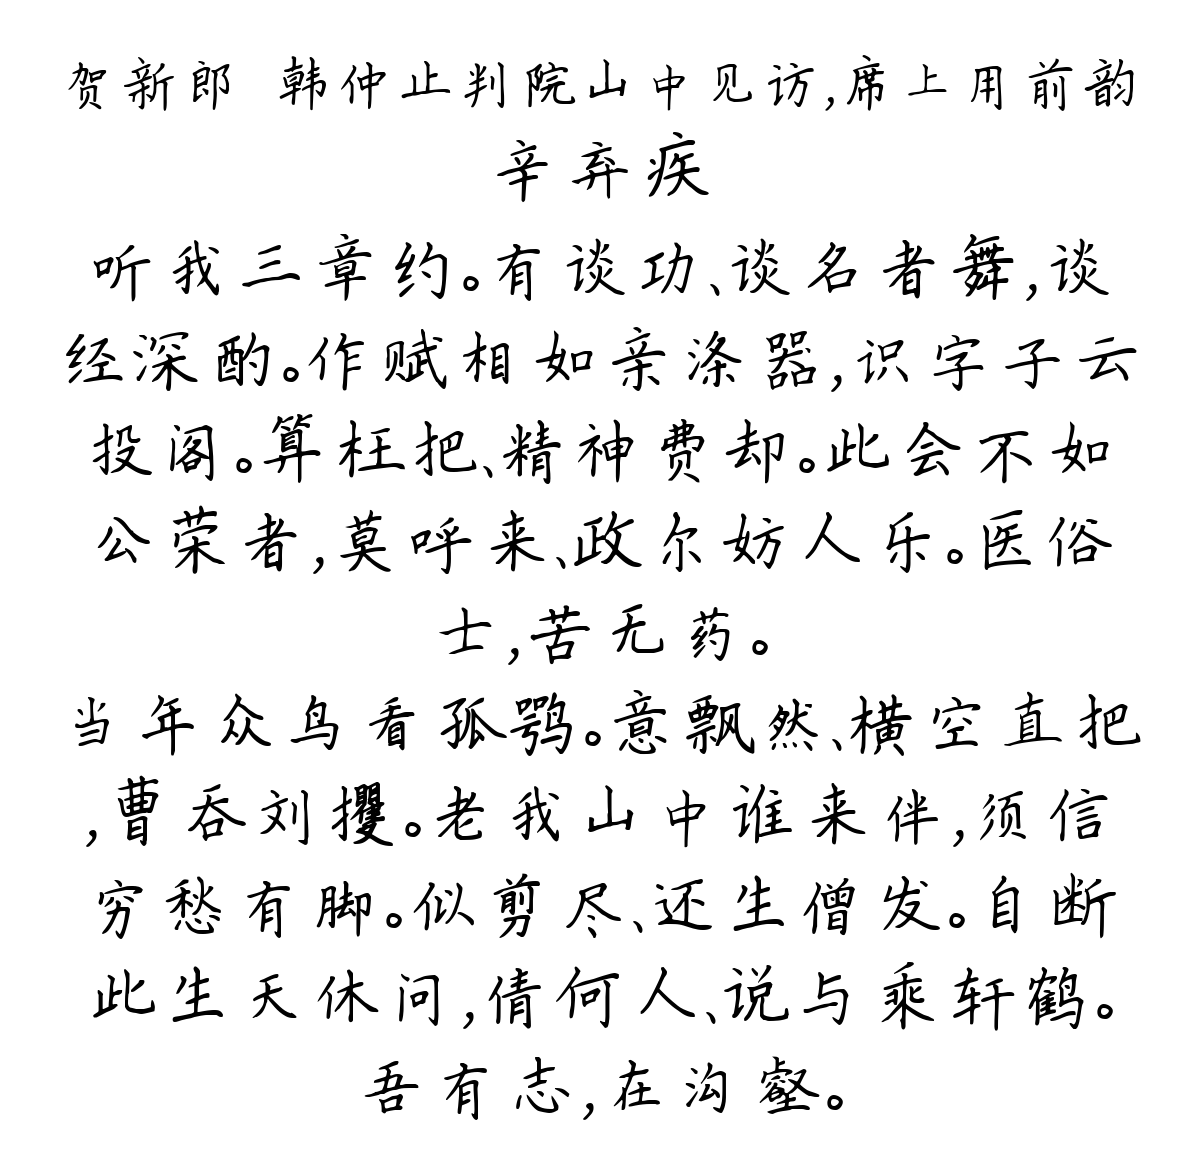 贺新郎 韩仲止判院山中见访,席上用前韵
辛弃疾
听我三章约。有谈功、谈名者舞,谈
经深酌。作赋相如亲涤器,识字子云
投阁。算枉把、精神费却。此会不如
公荣者,莫呼来、政尔妨人乐。医俗
士,苦无药。
当年众鸟看孤鹗。意飘然、横空直把
,曹吞刘攫。老我山中谁来伴,须信
穷愁有脚。似剪尽、还生僧发。自断
此生天休问,倩何人、说与乘轩鹤。
吾有志,在沟壑。